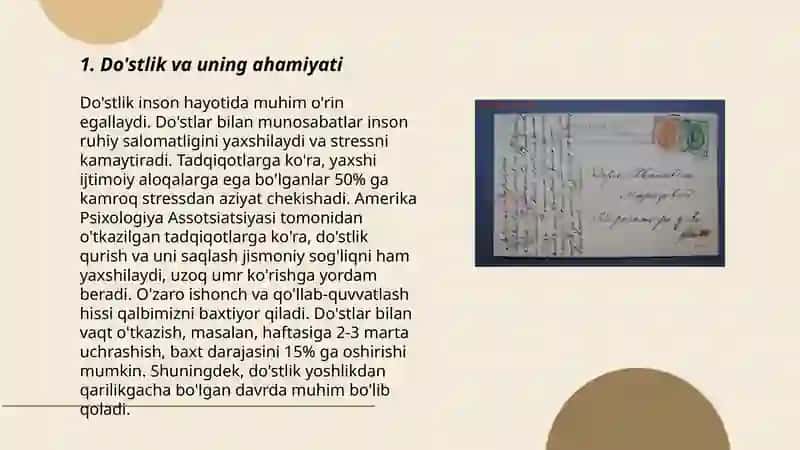 1. Do'stlik va uning ahamiyati
Do'stlik inson hayotida muhim o'rin
egallaydi. Do'stlar bilan munosabatlar inson
ruhiy salomatligini yaxshilaydi va stressni
kamaytiradi. Tadqiqotlarga ko'ra, yaxshi
ijtimoiy aloqalarga ega bo'lganlar 50% ga
kamroq stressdan aziyat chekishadi. Amerika
Psixologiya Assotsiatsiyasi tomonidan
o'tkazilgan tadqiqotlarga ko'ra, do'stlik
qurish va uni saqlash jismoniy sog'liqni ham
yaxshilaydi, uzoq umr ko'rishga yordam
beradi. O'zaro ishonch va qo'llab-quvvatlash
hissi qalbimizni baxtiyor qiladi. Do'stlar bilan
vaqt o'tkazish, masalan, haftasiga 2-3 marta
uchrashish, baxt darajasini 15% ga oshirishi
mumkin. Shuningdek, do'stlik yoshlikdan
qarilikgacha bo'lgan davrda muhim bo'lib
qoladi.